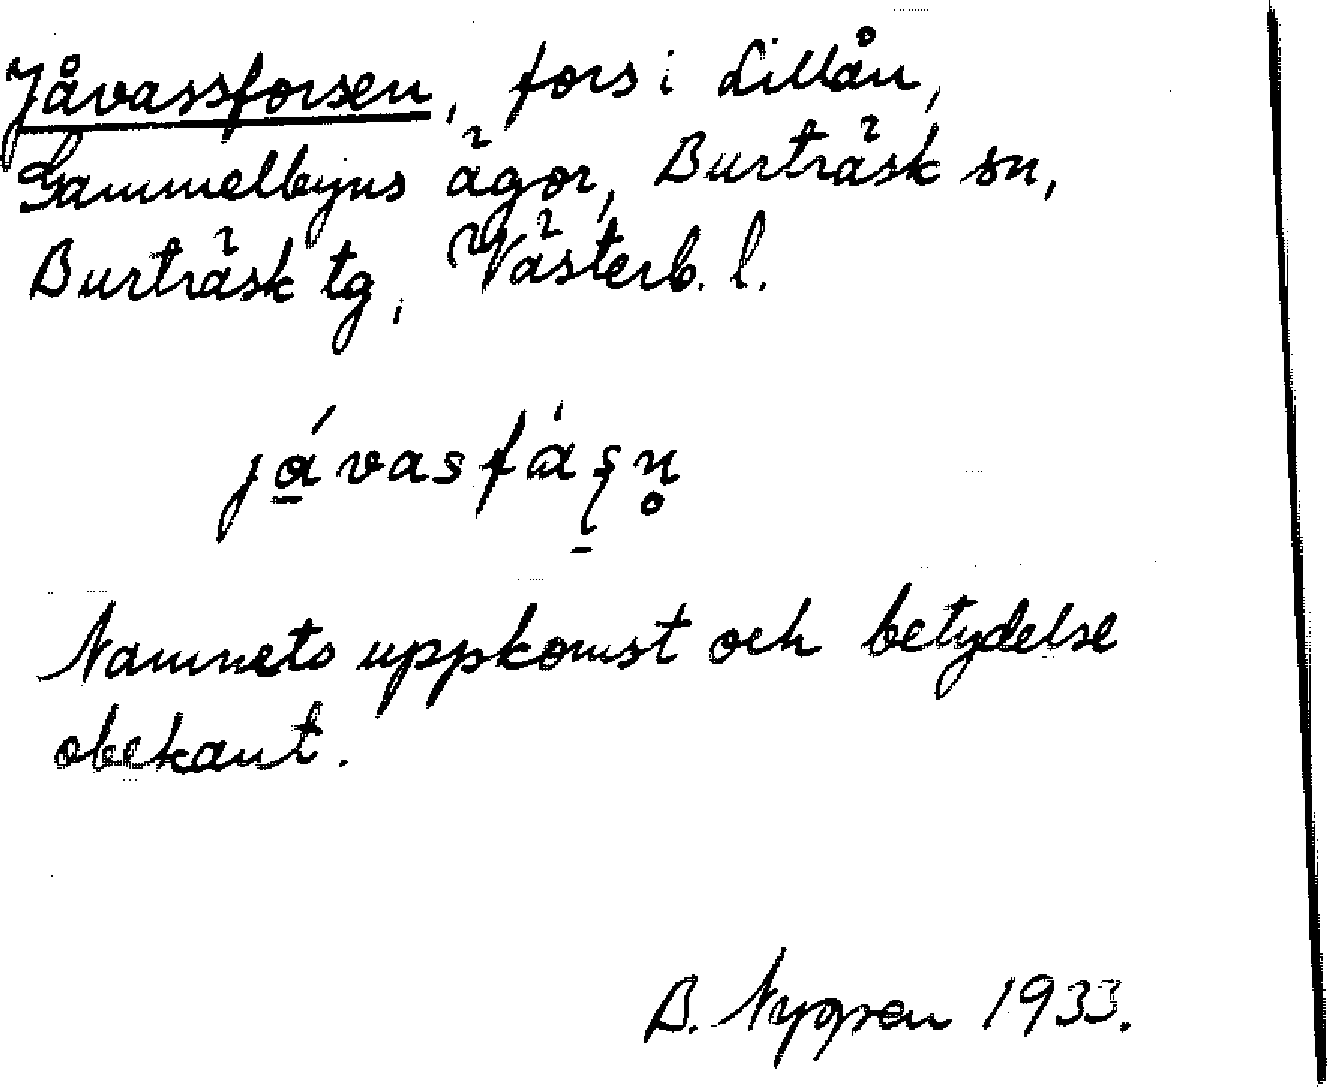 Jåvassforsen, fors i Lillån,
Gammelbyns ägor, Burträsk sn,
Burträsk tg, Västerb. l.
jávasfásn̥
Namnets uppkomst och betydelse
obekant.
B. Nygren 1933.